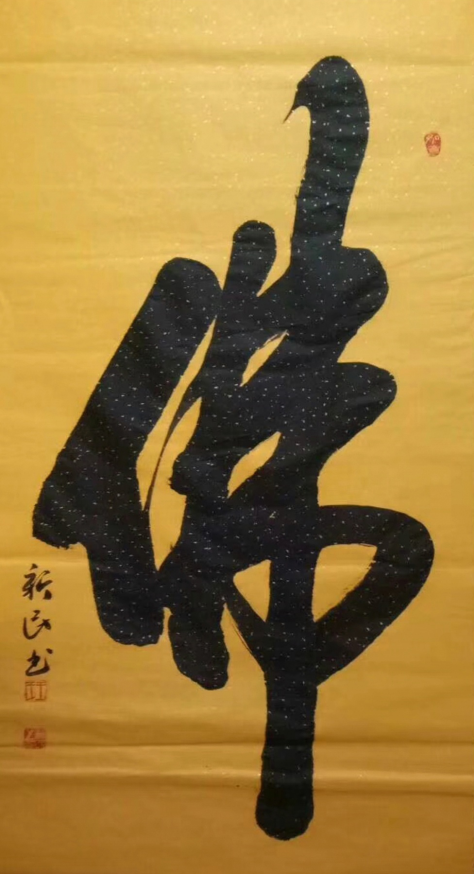 佛
新民书